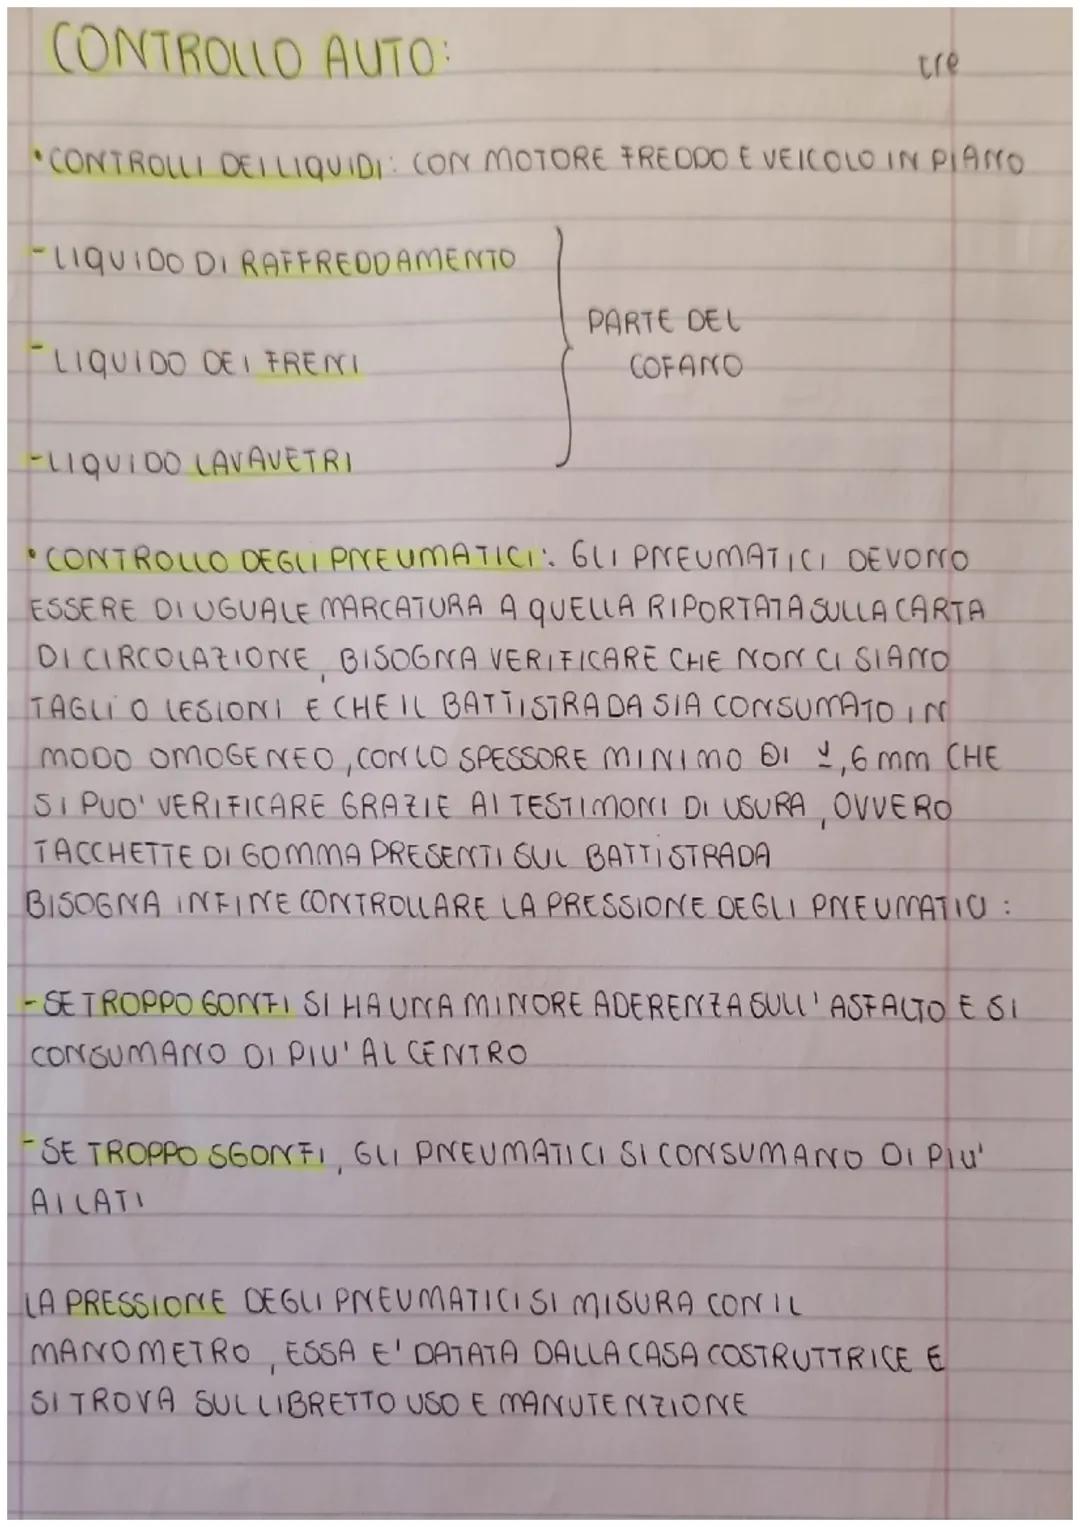 CONTROLLO AUTO:
tre
• CONTROLLI DEI LIQUIDI: CON MOTORE FREDDO E VEICOLO IN PIANO
- LIQUIDO DI RAFFREDDAMENTO
PARTE DEL
- LIQUIDO DEI FRENI
COFANO
- LIQUIDO LAVAVETRI
• CONTROLLO DEGLI PNEUMATICI: GLI PNEUMATICI DEVONO
ESSERE DI UGUALE MARCATURA A QUELLA RIPORTATA SULLA CARTA
DI CIRCOLAZIONE, BISOGNA VERIFICARE CHE NON CI SIANO
TAGLI O LESIONI E CHE IL BATTISTRADA SIA CONSUMATO IN
MODO OMOGENEO, CON LO SPESSORE MINIMO DI 1,6 mm CHE
SI PUO' VERIFICARE GRAZIE AI TESTIMONI DI USURA, OVVERO
TACCHETTE DI GOMMA PRESENTI SUL BATTISTRADA
BISOGNA INFINE CONTROLLARE LA PRESSIONE DEGLI PNEUMATICI:
- SE TROPPO GONFI SI HA UNA MINORE ADERENZA SULL'ASFALTO E SI
CONSUMANO DI PIU' AL CENTRO
- SE TROPPO SGONFI, GLI PNEUMATICI SI CONSUMANO DI PIU'
AI LATI
LA PRESSIONE DEGLI PNEUMATICI SI MISURA CON IL
MANOMETRO, ESSA E' DATATA DALLA CASA COSTRUTTRICE E
SI TROVA SUL LIBRETTO USO E MANUTENZIONE